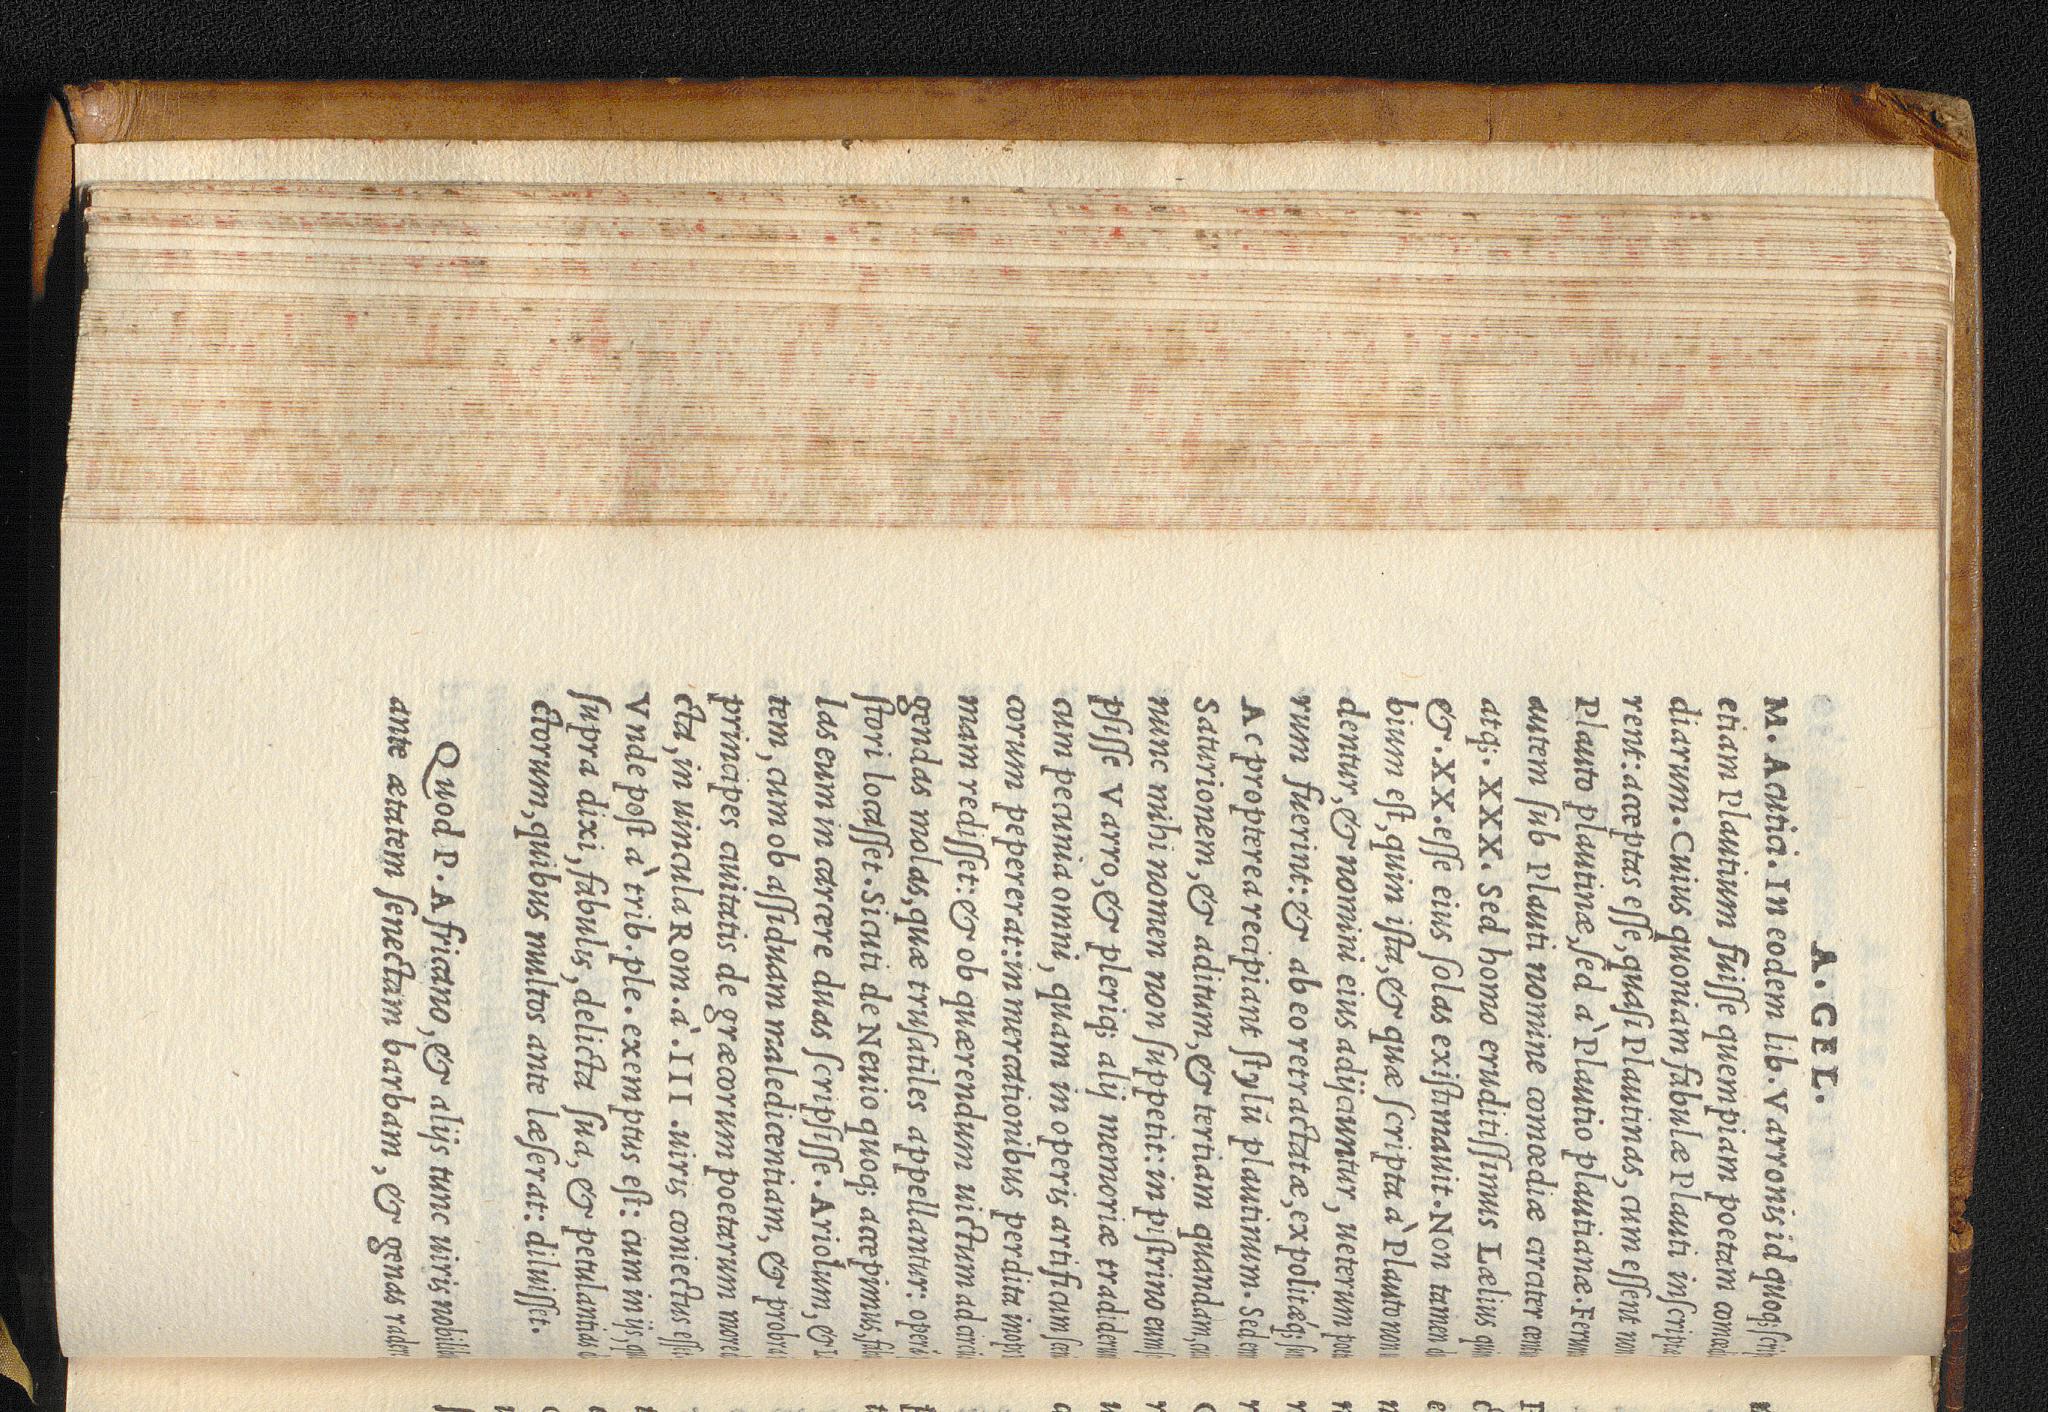 A. GEL.
M. Actici. In eodem lib. Varronis id quoq;
etiam Plautium fuisse quempiam poetam
diarum. Cuius quoniam fabulæ Plauti
rent: acceptas esse, quasi Plautinas, cum essent
Plauto plautinæ, sed à Plautio plautianæ.
autem sub Plauti nomine comœdiæ circiter
atq;. XXX. Sed homo eruditissimus Lælius
&. XX. esse eius solas existimauit. Non tamen
bium est, quin ista, & quæ scripta à Plauto non
dentur, & nomini eius adijciuntur, ueterum
rum fuerint: & ab eo retractatæ, expolitæq;
Ac propterea recipiant stylũ plautinum. Sed
Saturionem, & aditum, & tertiam quandam,
nunc mihi nomen non suppetit: in pistrino eum
psisse Varro, & pleriq; alij memoriæ
cum pecunia omni, quam in operis artificum
corum pepererat: in mercationibus perdita
mam redisset: & ob quærendum uictum ad
gendas molas, quæ trusatiles appellantur:
stori locasset. Sicuti de Neuio quoq; accepimus,
las eum in carcere duas scripsisse. Ariolum, &
tem, cum ob assiduam maledicentiam, & probra
principes ciuitatis de græcorum poetarum more
cta, in uincula Rom. à. III .uiris coniectus
Vnde post à trib. ple. exemptus est: cum in ijs,
supra dixi, fabulis, delicta sua, & petulantias
ctorum, quibus multos ante læserat: diluisset.
Quod P. Africano, & alijs tunc uiris
ante ætatem senectam barbam, & genas